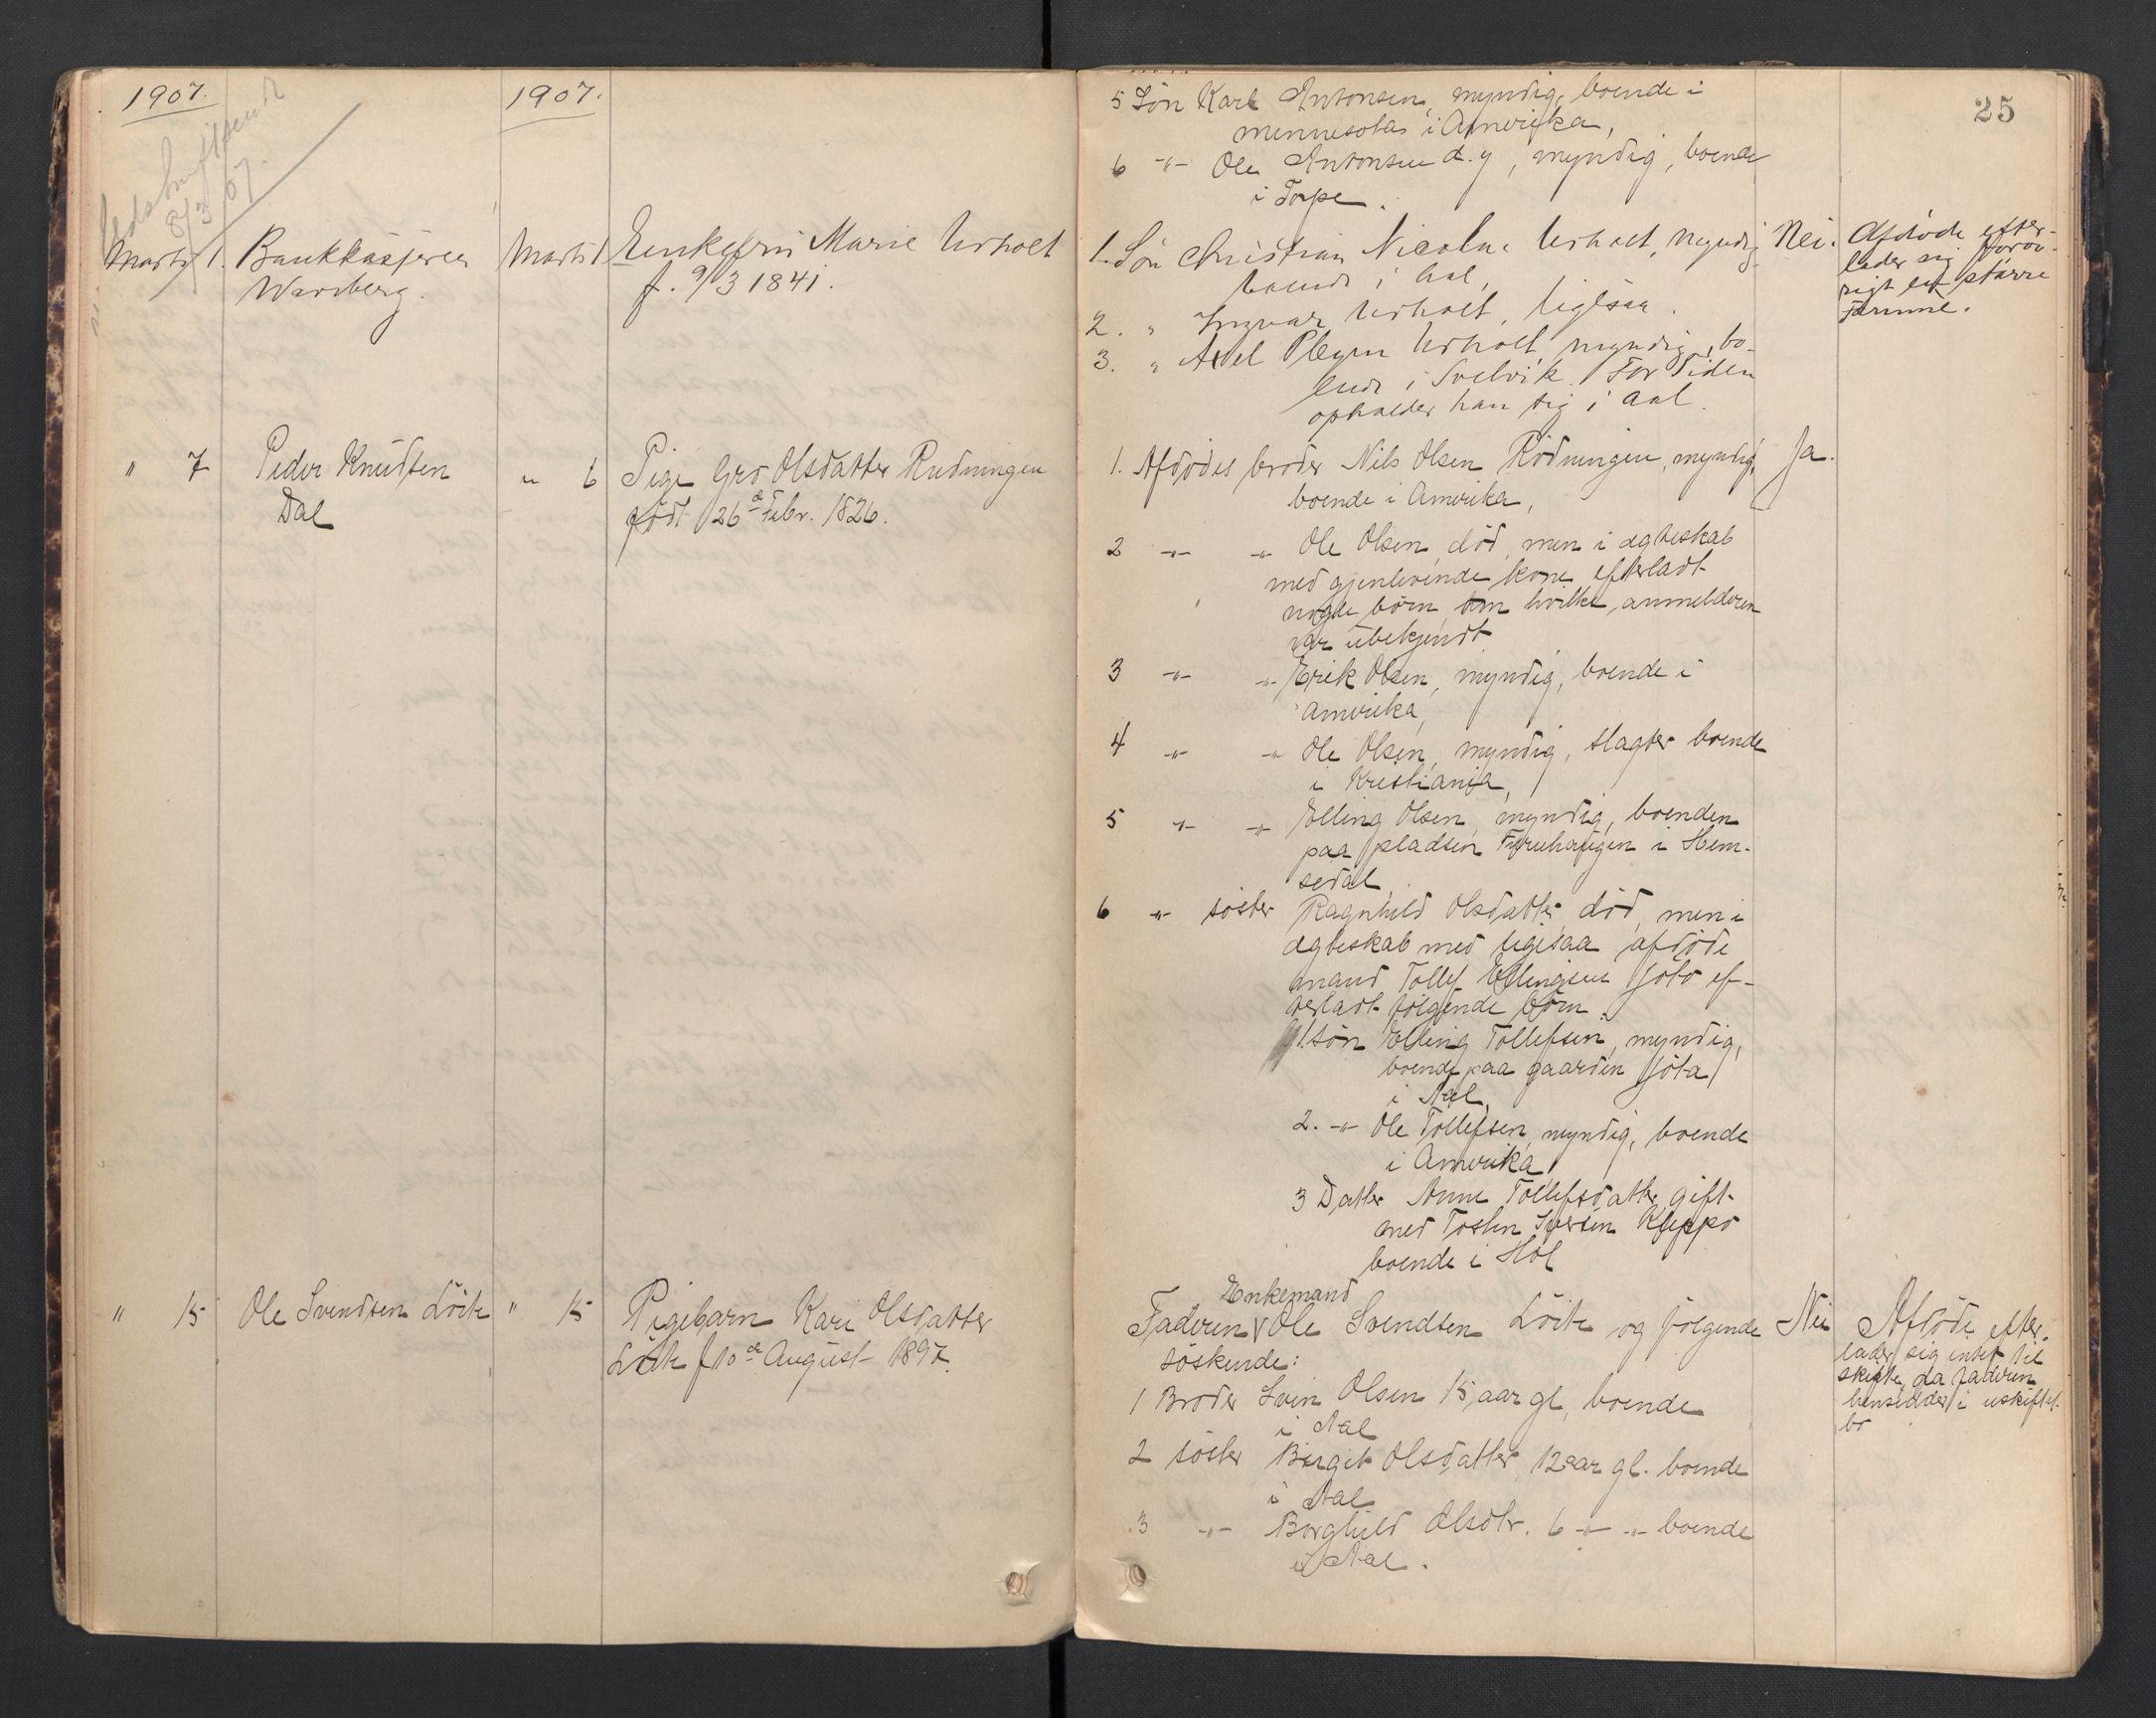 1907.
1907.
8/3 07.
Marts 1. Bankkasserer
Warberg.
Marts 1 Enkefru Marie Urholt
f. 9/3 1841.
" 7 Peder Knudsen
Dal
" 6 Pige Gro Olsdatter Rudningen
född 26de Febr. 1826.
" 15 Ole Svendsen Löite
" 15 Pigebarn Kari Olsdatter
Löite f 10de August 1897.
25
5 Sön Karl Antonsen, myndig, boende i
minnesota i Amerika,
6 -"- Ole Antonsen d.y, myndig, boende
i Torpe.
1. Sön Christian Nicolai Urholt, myndig
boende i Aal,
Nei.
Afdöde efter-
lader sig
rigt et större
Formue.
2. " Ingvar Urholt, ligesaa.
3. " Axel Pleym Urholt, myndig, bo-
ende i Svelvik. For Tiden
opholder han sig i Aal.
1. Afdödes broder Nils Olsen Rödningen, myndig,
boende i Amerika,
Ja.
2 -"- -"- Ole Olsen, död, men i ægteskab
med gjenlevende kone efterladt
nogle börn, om hvilke anmelderen
var ubekjendt.
3 -"- -"- Erik Olsen, myndig, boende i
Amerika,
4 -"- -"- Ole Olsen, myndig, slagter boende
i Kristiania,
5 -"- -"- Elling Olsen, myndig, boenden
paa pladsen Furuhaugen i Hem-
sedal,
6 -"- söster Ragnhild Olsdatter, död, men i
ægteskab med ligesaa afdöde
mand Tollef Ellingsen Göto ef-
terladt fölgende börn:
1. sön Elling Tollefsen, myndig,
boende paa gaarden Göta
i Aal,
2. -"- Ole Tollefsen, myndig, boende
i Amerika,
3 Datter Anne Tollefsdatter, gift
med Tosten Iversen Kleppo
boende i Hol
Enkemand
Faderen Ole Svendsen Löite og fölgende
söskende:
Nei
Afdöde efter-
lader sig intet til
skifte, da faderen
hensidder i uskiftet
bo
1 Broder Svein Olsen 15 aar gl, boende
i Aal
2 söster Birgit Olsdatter, 12 aar gl. boende
i Aal
3 -"- Borghild Olsdtr. 6 -"- -"- boende
i Aal.